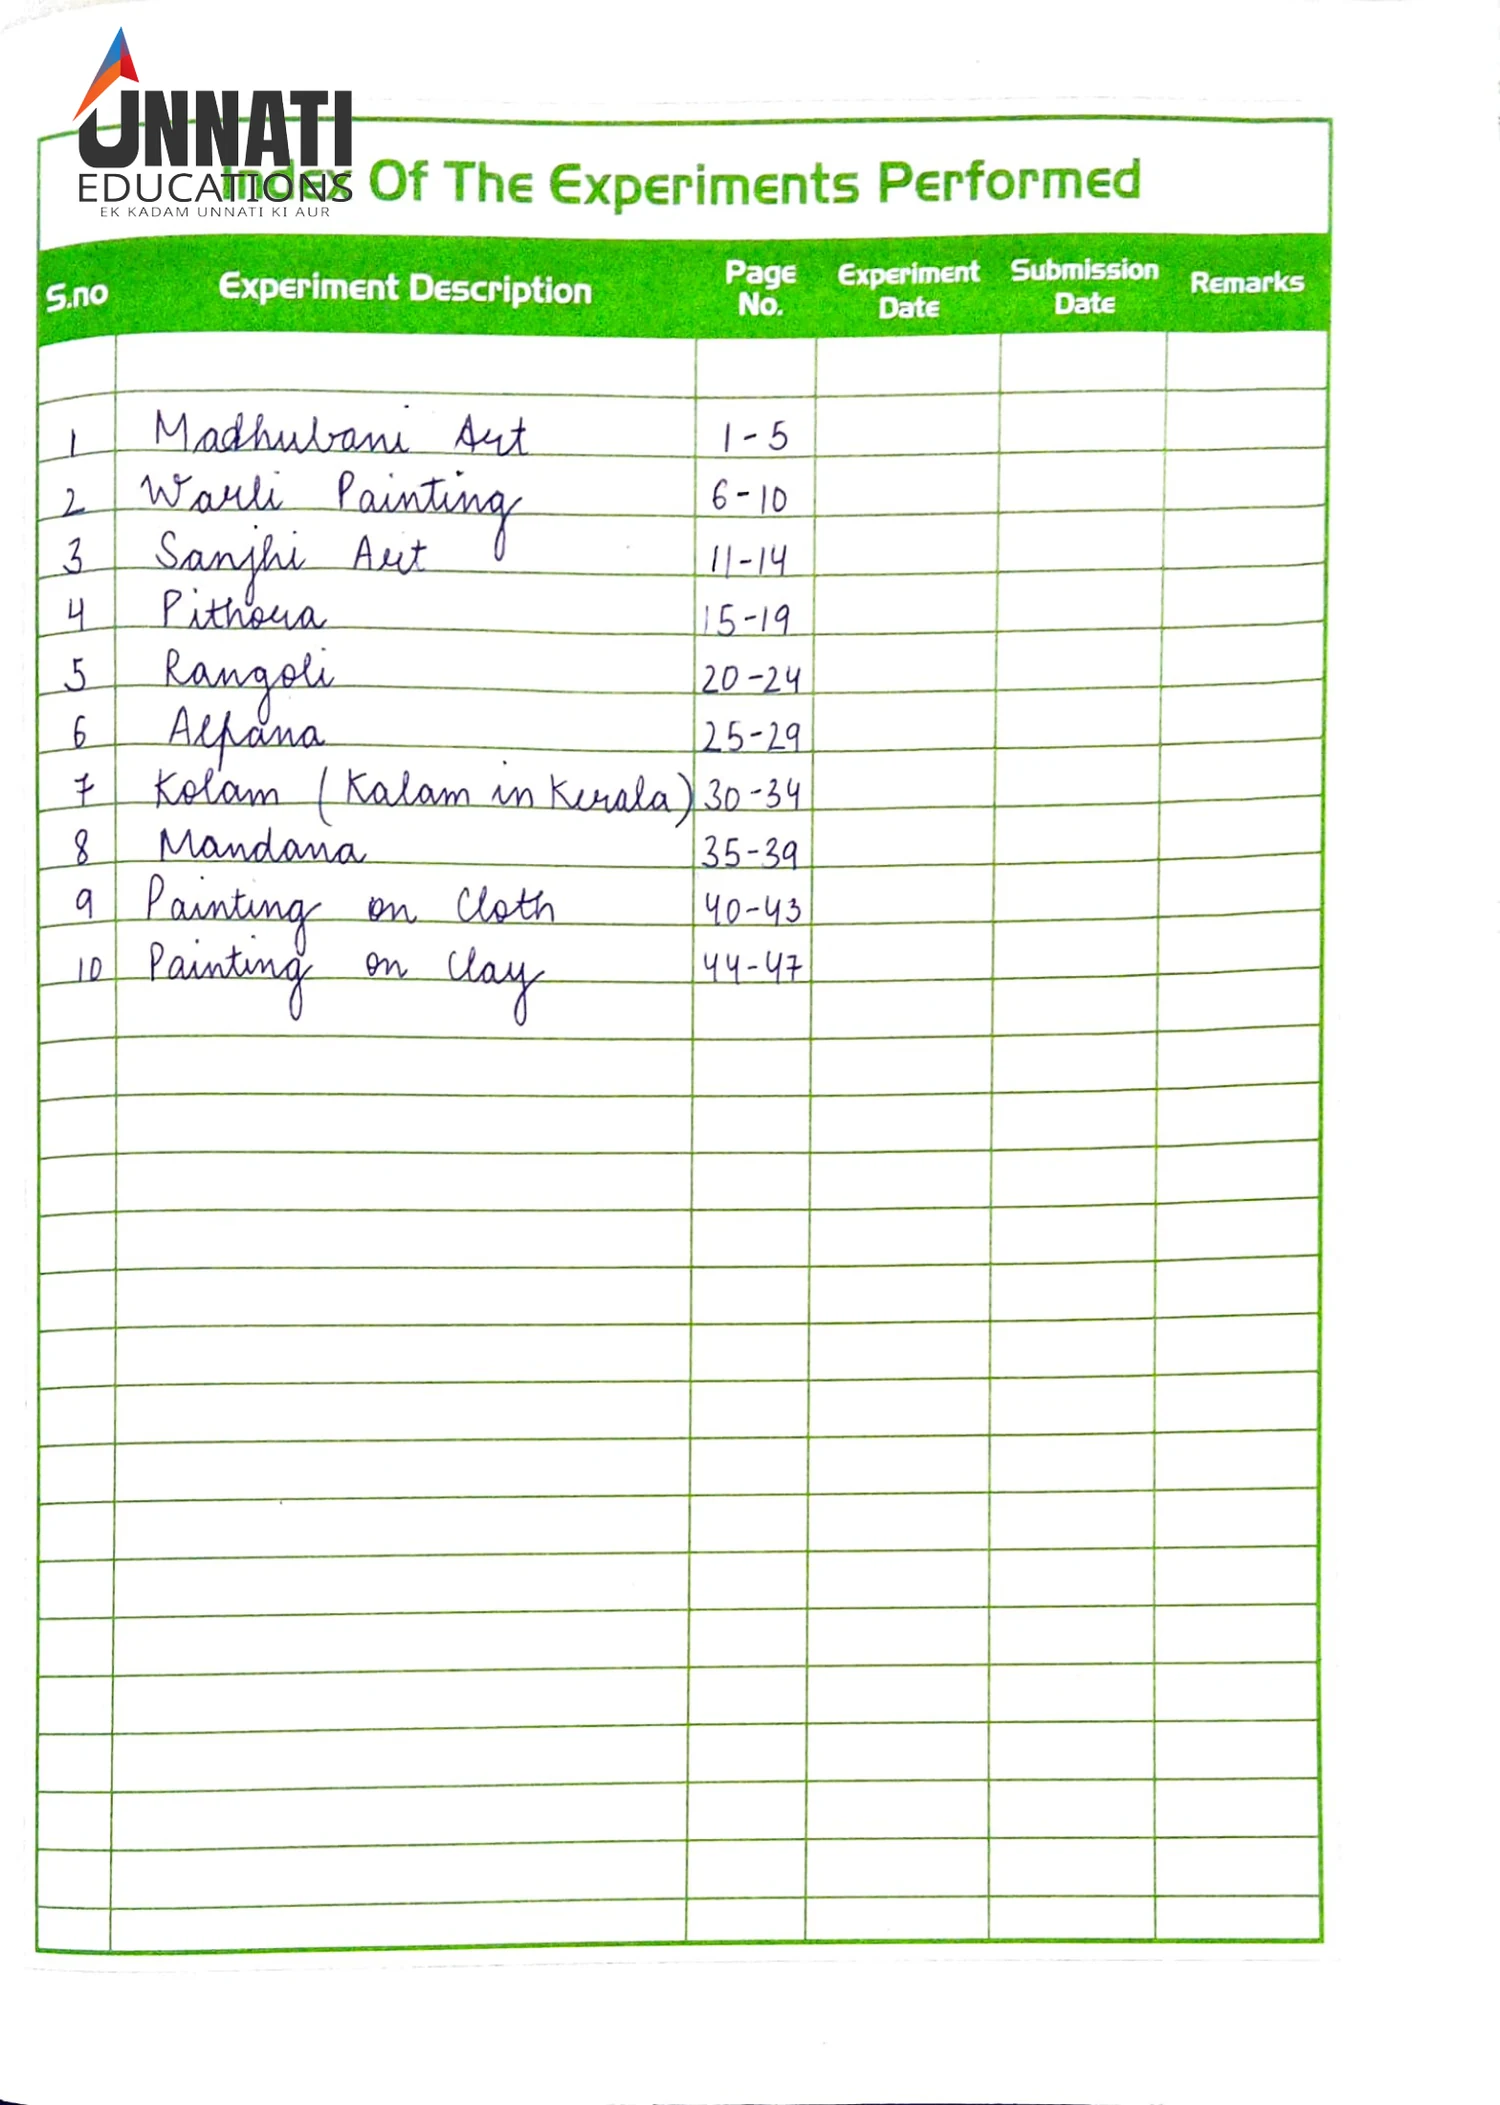 UNNATI
EDUCATIONS
EK KADAM UNNATI KI AUR
Index Of The Experiments Performed
S.no Experiment Description Page No. Experiment Date Submission Date Remarks
1 Madhubani Art 1-5
2 Warli Painting 6-10
3 Sanjhi Art 11-14
4 Pithora 15-19
5 Rangoli 20-24
6 Alpana 25-29
7 Kolam (Kalam in Kerala) 30-34
8 Mandana 35-39
9 Painting on Cloth 40-43
10 Painting on Clay 44-47